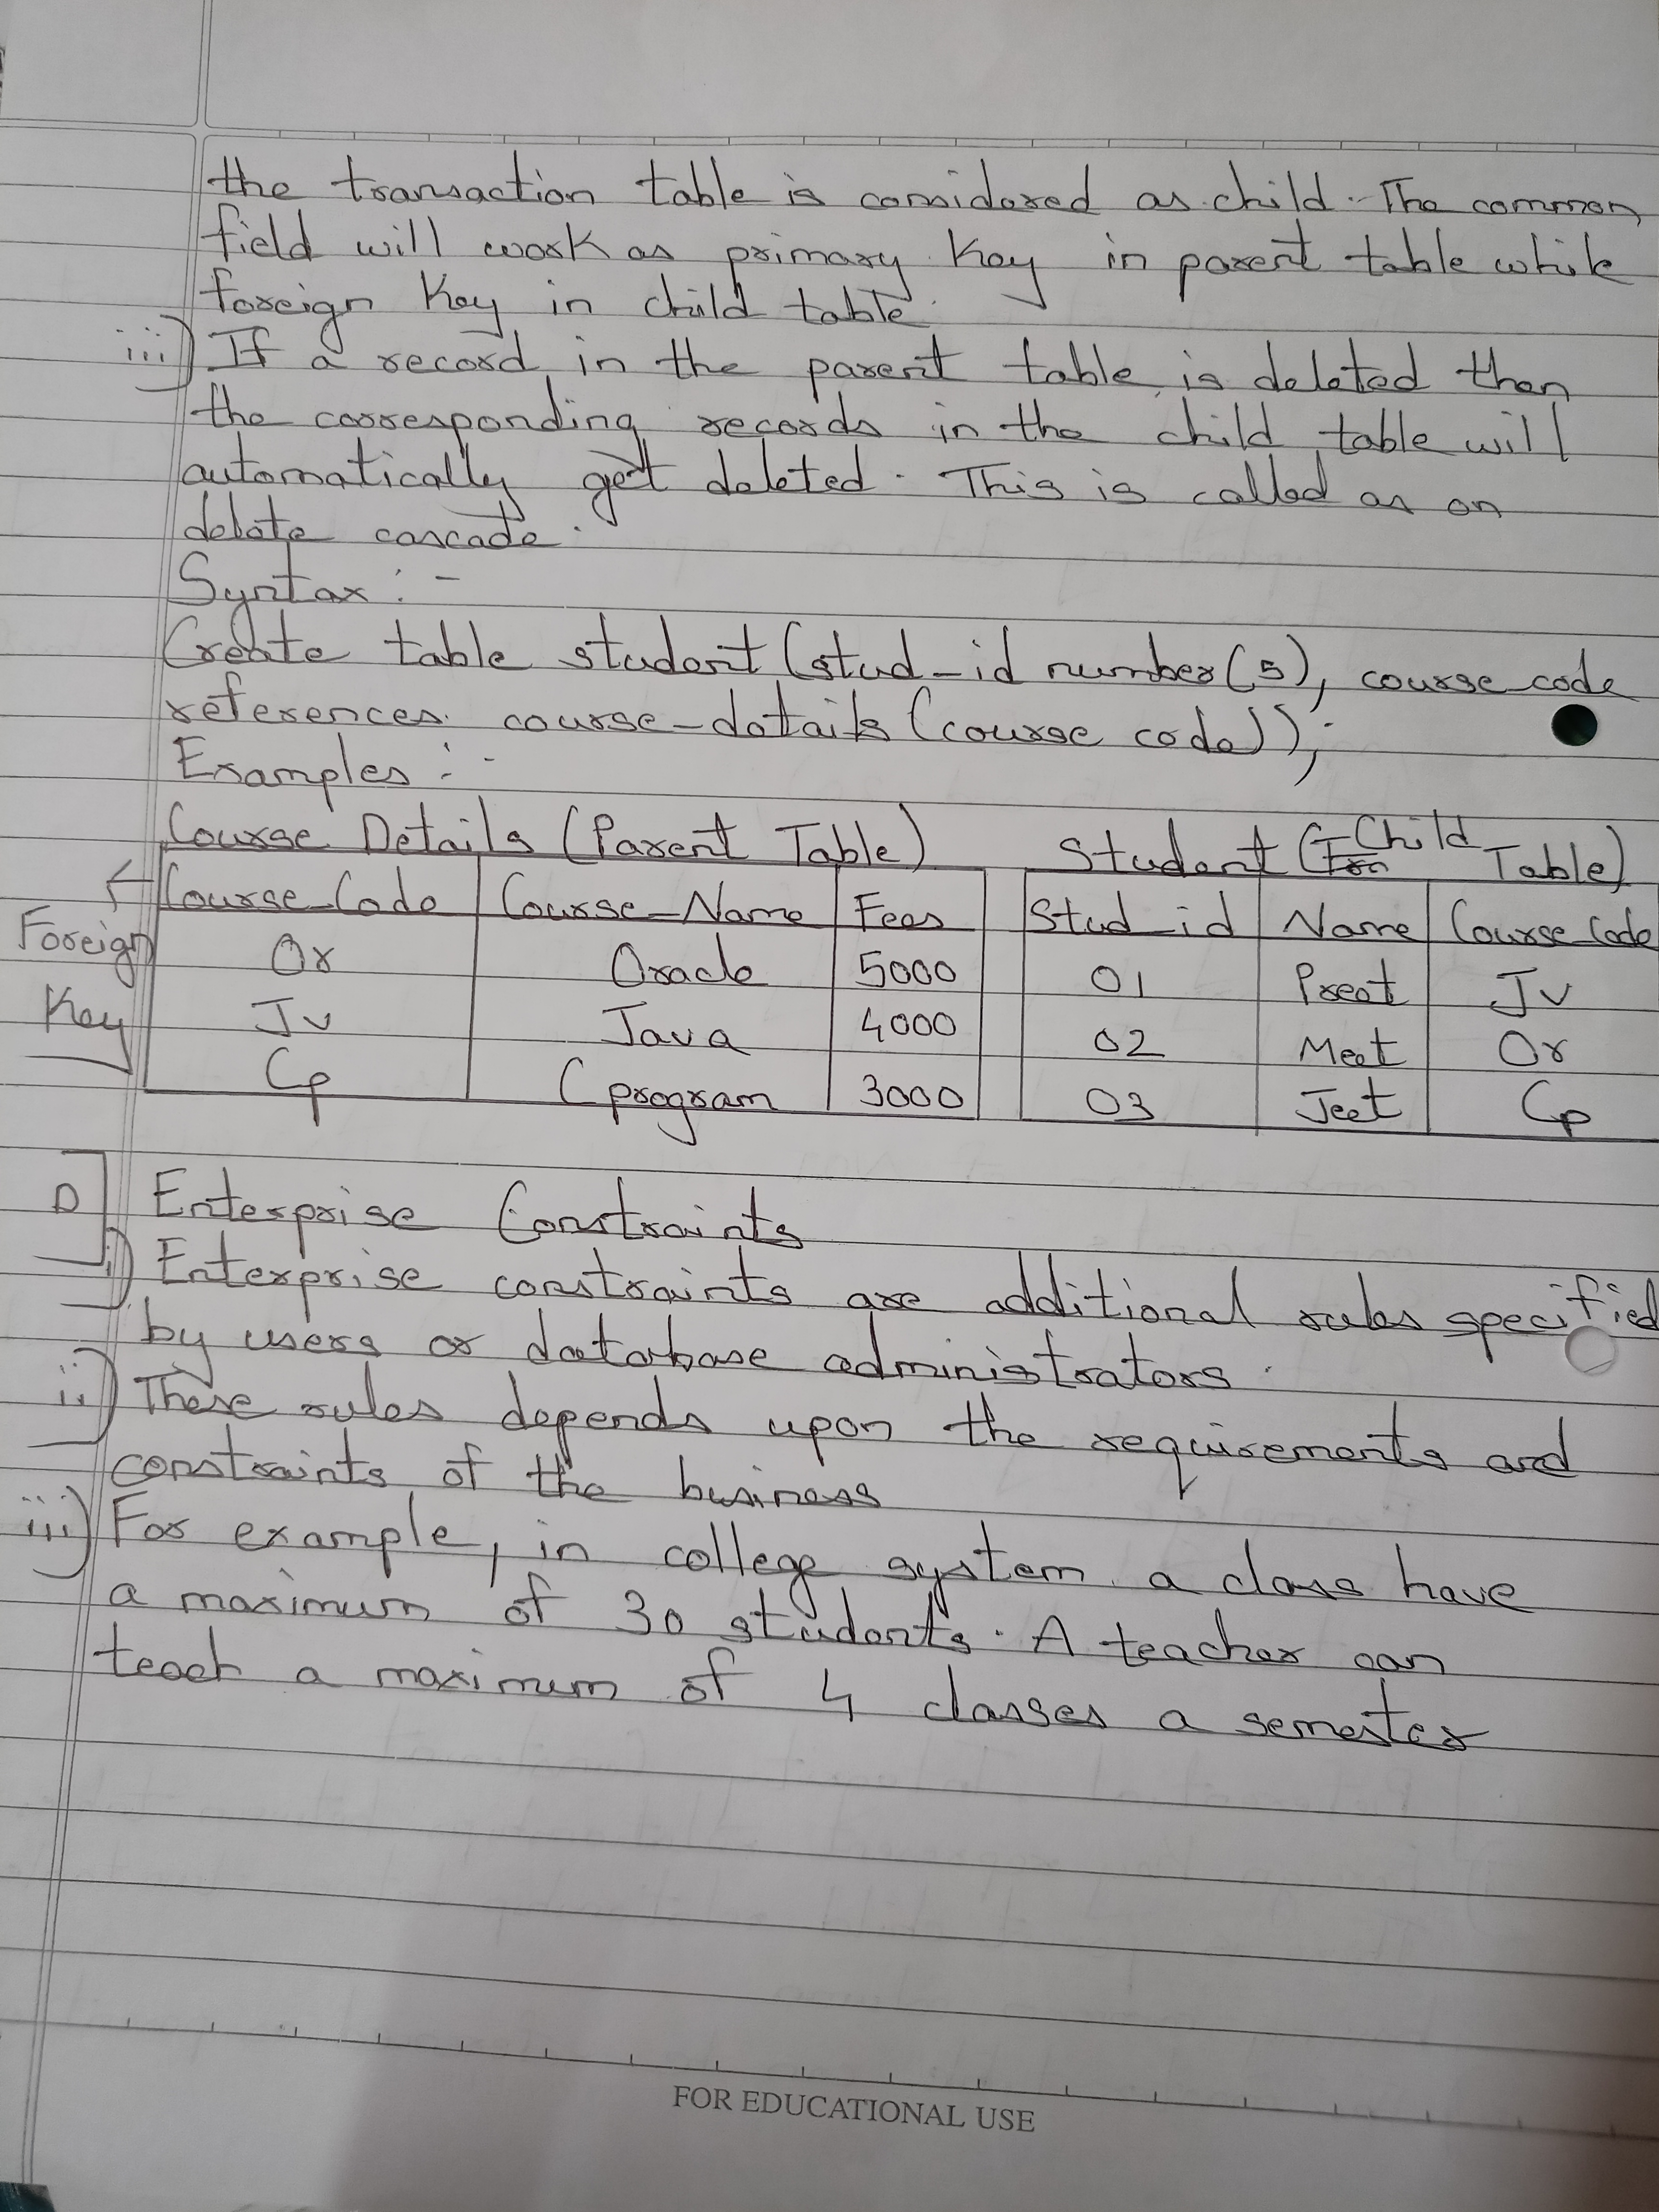 the transaction table is considered as child. The common
field will work as primary key in parent table while
foreign key in child table.
iii) If a record in the parent table is deleted then
the corresponding records in the child table will
automatically get deleted. This is called as on
delete cascade.
Syntax :-
Create table student (stud-id number(5), course-code
references course-details (course code));
Examples :-
Course Details (Parent Table) Student (Child Table)
Course-Code Course-Name Fees Stud-id Name Course-Code
Foreign Key
Or Oracle 5000 01 Preet Jv
Jv Java 4000 02 Meet Or
Cp C program 3000 03 Jeet Cp
D] Enterprise Constraints
i) Enterprise constraints are additional rules specified
by users or database administrators.
ii) These rules depends upon the requirements and
constraints of the business
iii) For example, in college system a class have
a maximum of 30 students. A teacher can
teach a maximum of 4 classes a semester
FOR EDUCATIONAL USE